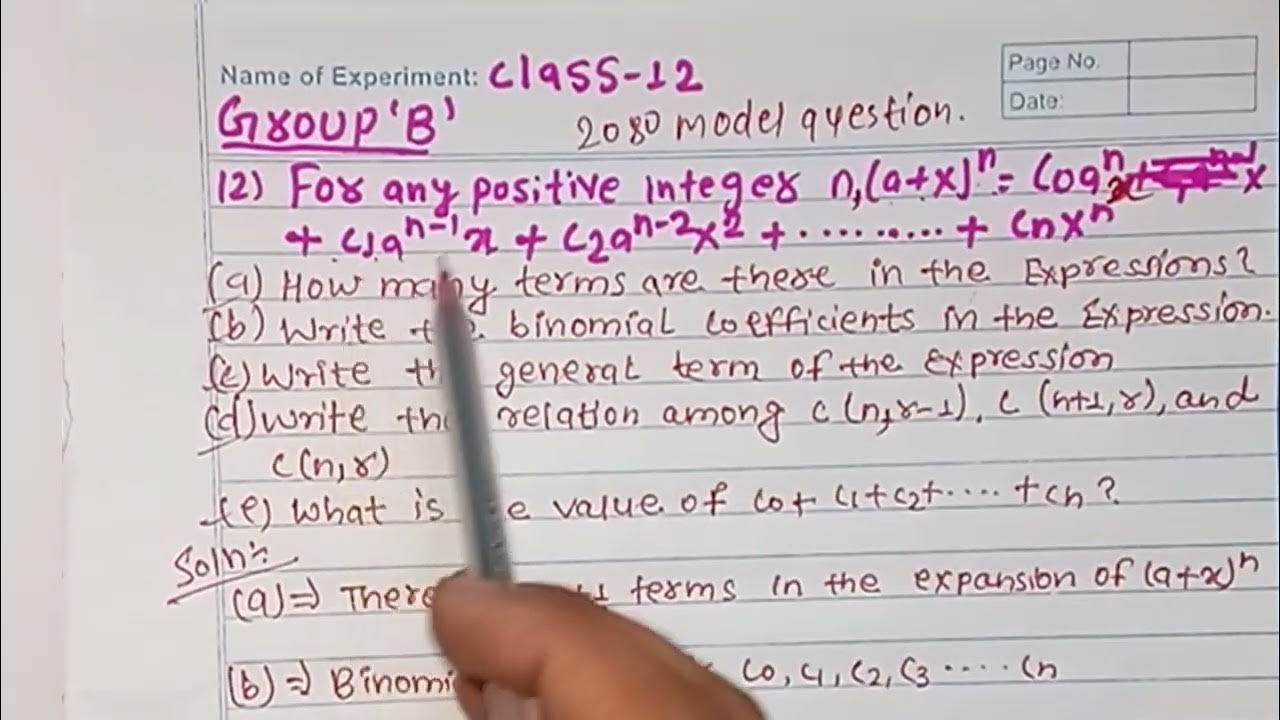 Name of Experiment: Class-12
Page No.
Date:
Group 'B'
2080 model question.
12) For any positive integer n, (a+x)^n = C0a^n x
+ C1a^n-1 x + C2a^n-2 x^2 + .......... + Cnx^n
(a) How many terms are there in the Expressions?
(b) Write the binomial coefficients in the Expression.
(c) Write the general term of the expression
(d) Write the relation among c(n,r-1), c(n+1,r), and
c(n,r)
(e) What is the value of C0+ C1+C2+.....+Cn?
Soln:-
(a)⇒ There terms in the expansion of (a+x)^n
(b)⇒ C0, C1, C2, C3 ..... Cn